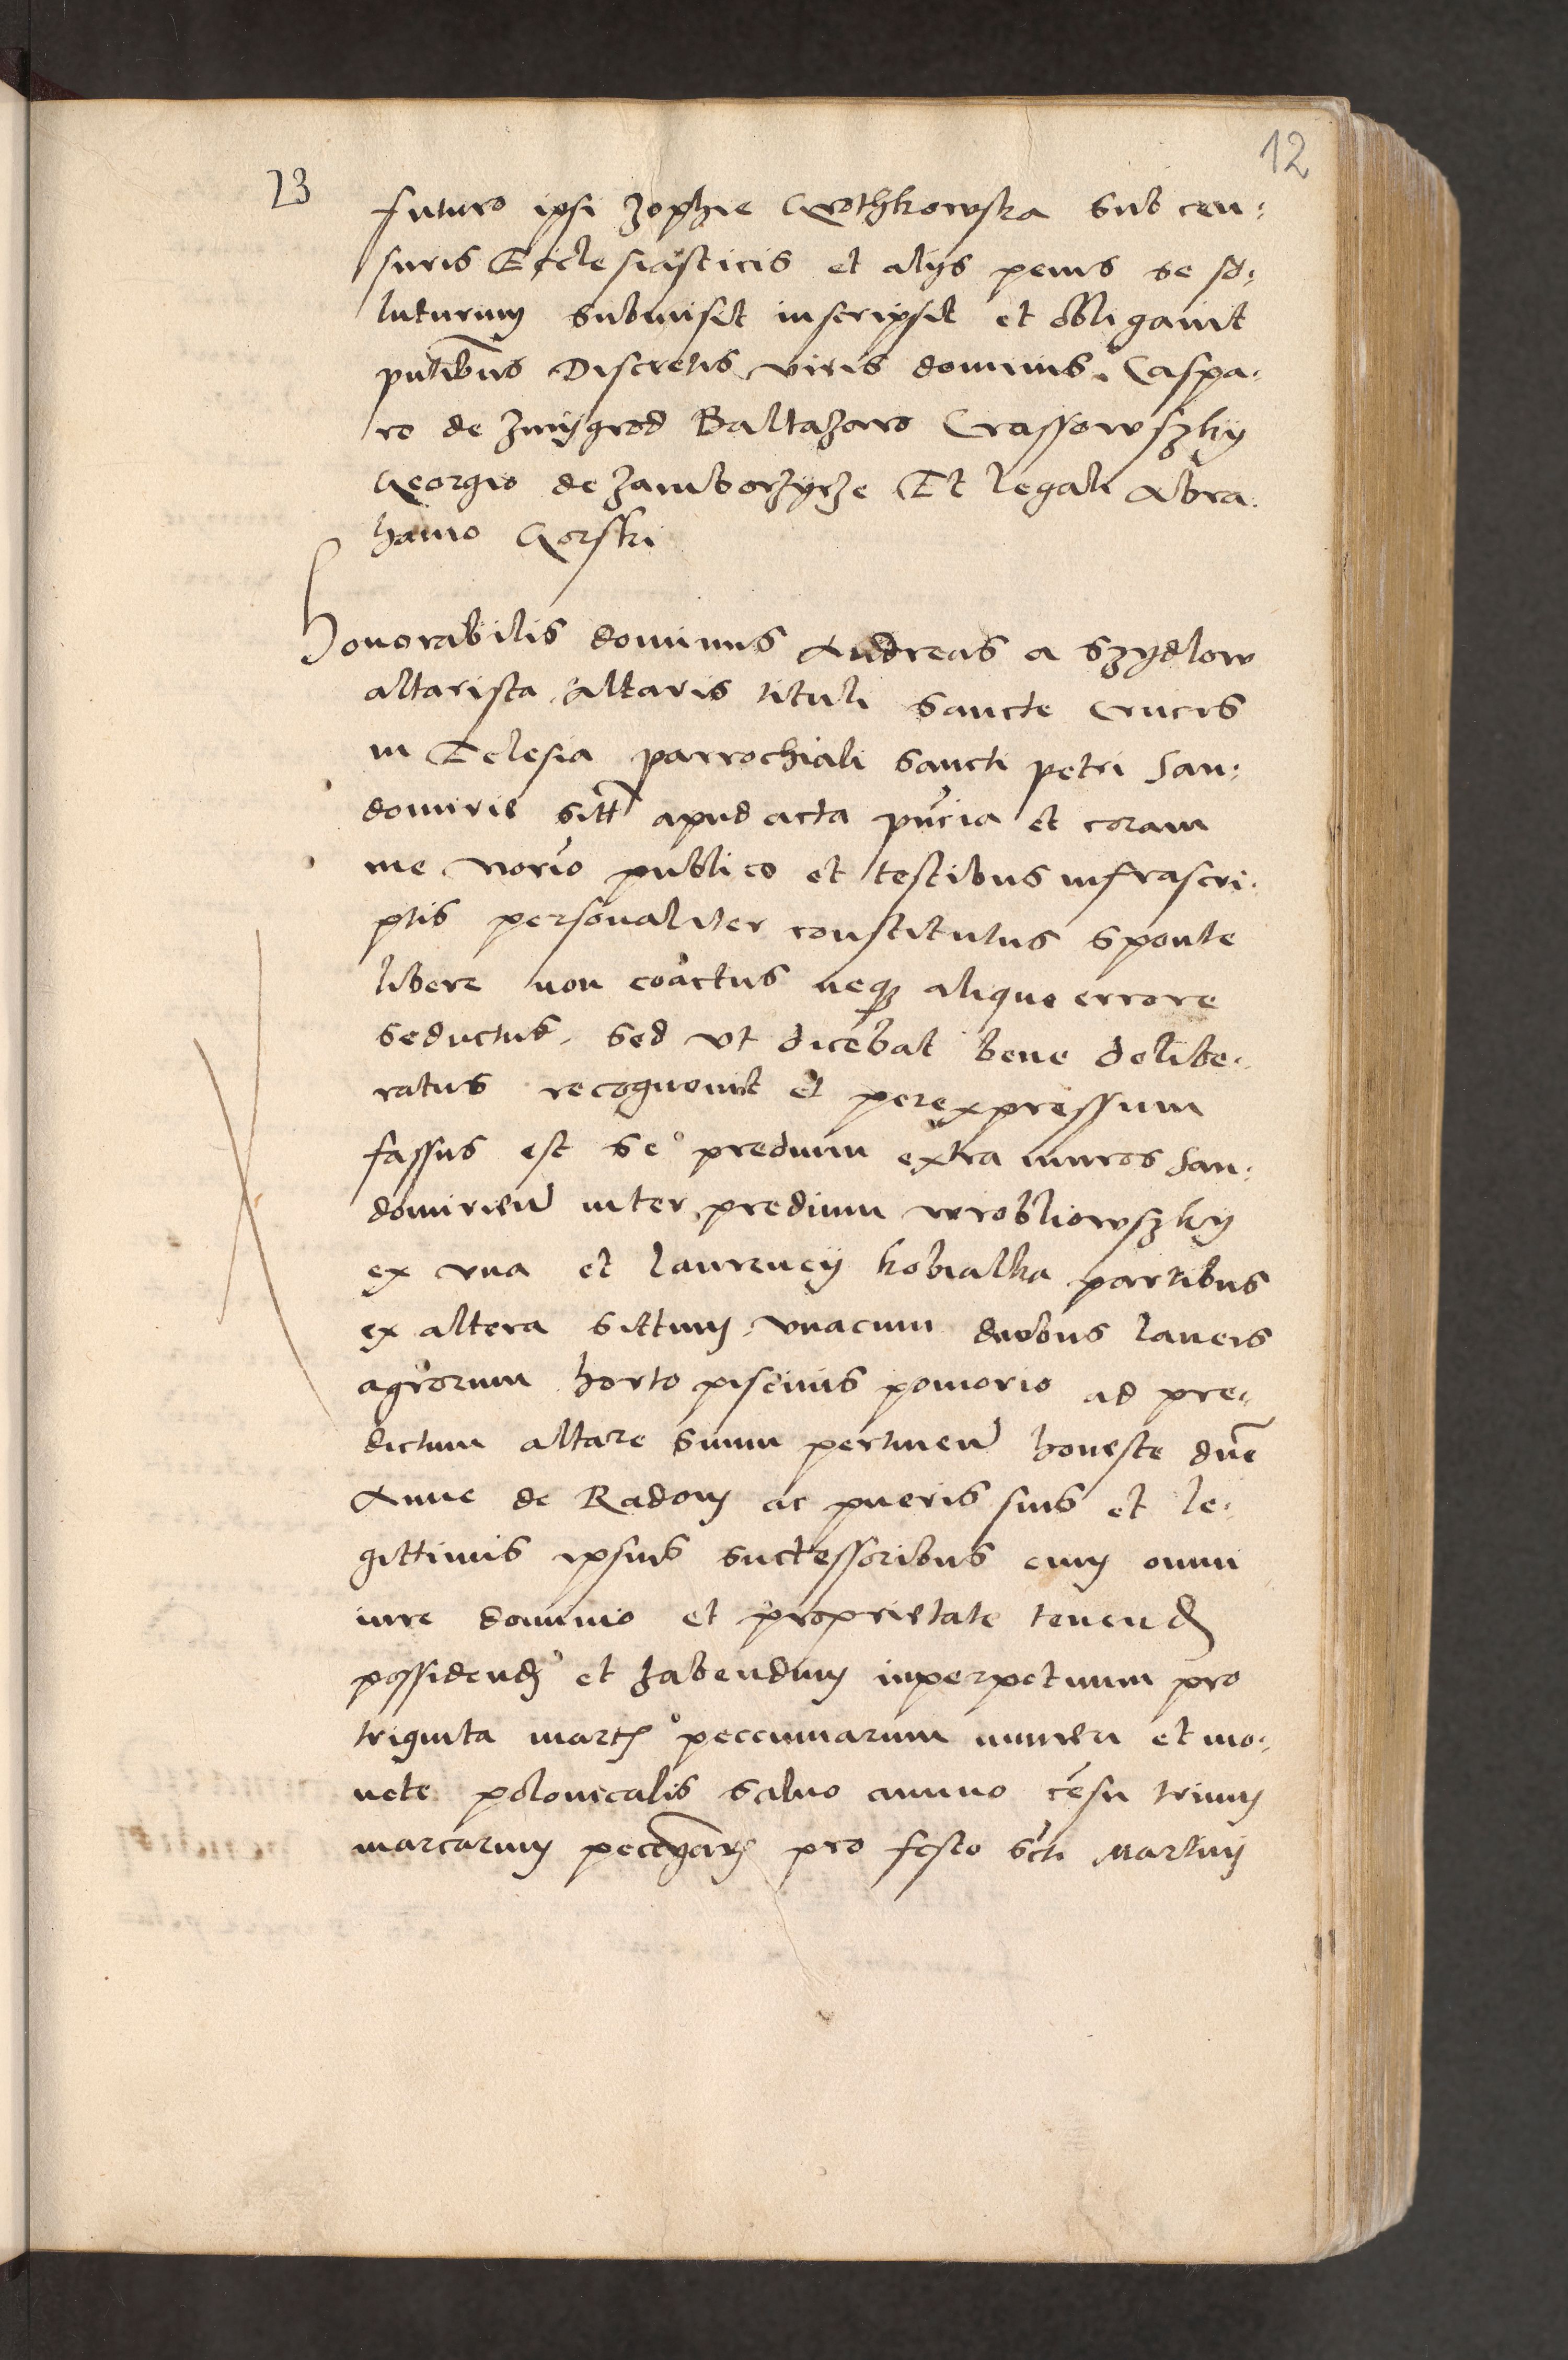 12
23
futuro ipsi Zophie Grothkowska sub cen:
suris Ecclesiasticis et alijs penis se so:
luturum submisit inscripsit et obligauit
pntibus Discretis viris dominis Caspa:
ro de Zmijgrod Baltazaro Crassowszky
Georgio de Zamborzycze Et legali Abra:
hamo Gorski
Honorabilis dominus Andreas a Szydlow
altarista altaris tituli Sancte Crucis
in Eclesia parrochiali Sancti petri San:
domirie sitt apud acta pncia et coram
me norio publico et testibus infrascri:
ptis personaliter constitutus sponte
libere non coactus neque aliquo errore
seductus, sed vt dicebat bene delibe:
ratus recognouit et per expressum
fassus est se predium extra muros San:
domirien inter predium wrobliowszky
ex vna et laurencij kobialka partibus
ex altera sittum, vnacum duobus laneis
agrorum horto piscinis pomorio ad pre:
dictum altare suum pertinen honeste dne
Anne de Radom ac pueris suis et le:
gittimis ipsius successoribus cum omni
iure dominio et proprietate tenend
possidend et habendum inperpetuum pro
triginta marcs peccuniarum numeri et mo:
nete polonicalis saluo annuo censu trium
marcarum pro festo scti Martinj